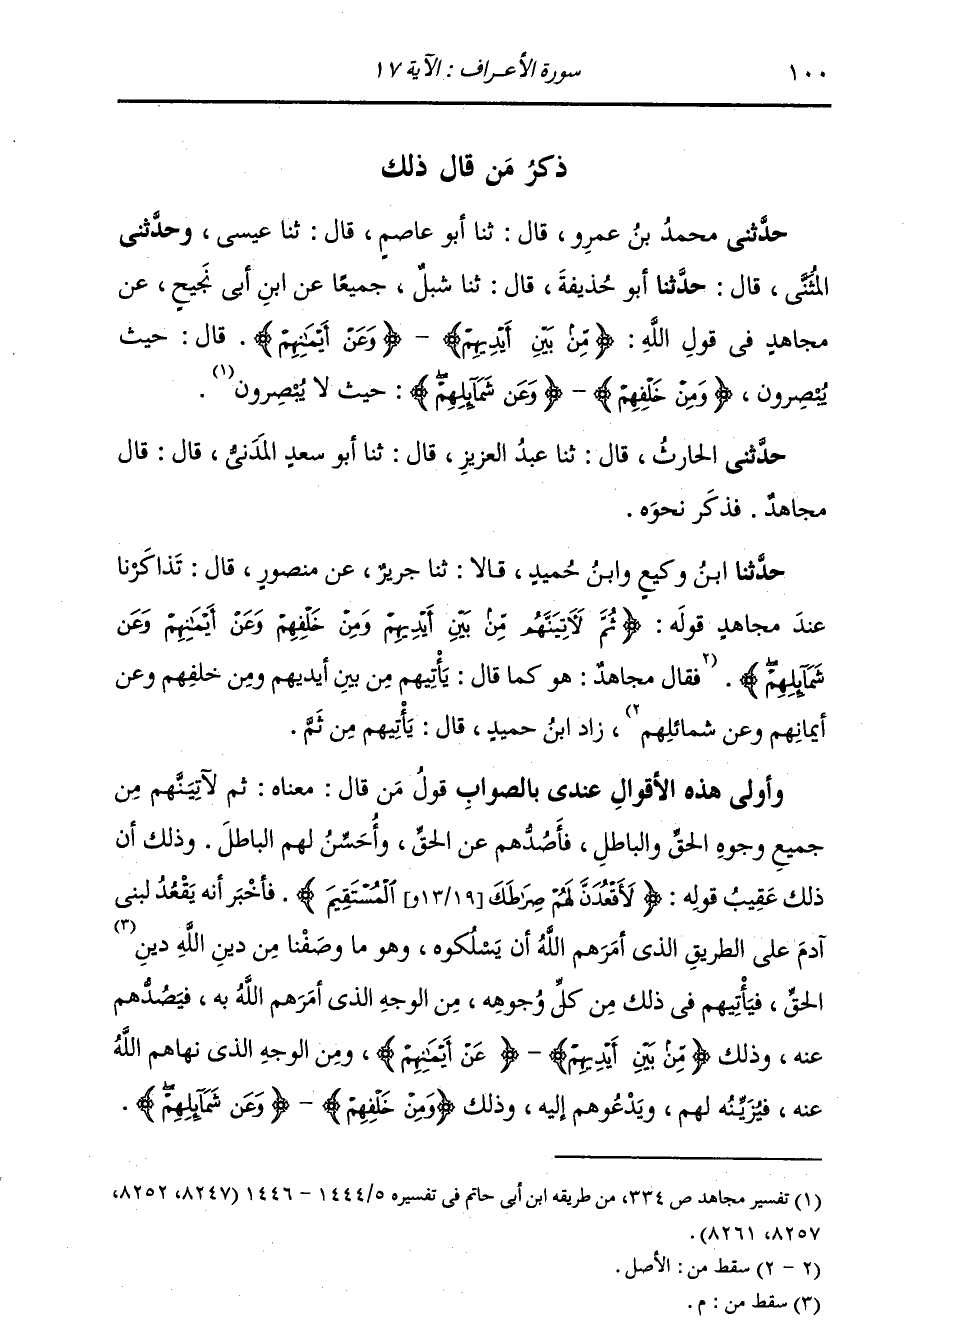 ١٠٠ سورة الأعراف : الآية ١٧
ذكرُ مَن قال ذلك
حدَّثنى محمدُ بنُ عمرِو ، قال : ثنا أبو عاصمٍ ، قال : ثنا عيسى ، وحدَّثنى
المُثَنَّى ، قال : حدَّثنا أبو حُذيفةَ ، قال : ثنا شبلٌ ، جميعًا عن ابنِ أبى نَجيحٍ ، عن
مجاهدٍ فى قولِ اللَّهِ : ﴿ مِّنْ بَيْنِ أَيْدِيهِمْ﴾ – ﴿ وَعَنْ أَيْمَٰنِهِمْ ﴾ . قال : حيث
يُبْصِرون ، ﴿ وَمِنْ خَلْفِهِمْ ﴾ – ﴿ وَعَن شَمَآئِلِهِمْۖ ﴾ : حيث لا يُبْصِرون(١) .
حدَّثنى الحارثُ ، قال : ثنا عبدُ العزيزِ ، قال : ثنا أبو سعدٍ المَدَنىُّ ، قال : قال
مجاهدٌ . فذكَر نحوَه .
حدَّثنا ابنُ وكيعٍ وابنُ حُميدٍ ، قالا : ثنا جريرٌ ، عن منصورٍ ، قال : تَذاكَرْنا
عندَ مجاهدٍ قولَه : ﴿ ثُمَّ لَآتِيَنَّهُم مِّنْ بَيْنِ أَيْدِيهِمْ وَمِنْ خَلْفِهِمْ وَعَنْ أَيْمَٰنِهِمْ وَعَن
شَمَآئِلِهِمْۖ ﴾ . (٢فقال مجاهدٌ : هو كما قال : يَأْتِيهم مِن بينِ أيديهم ومِن خلفِهم وعن
أيمانِهم وعن شمائلِهم٢) ، زاد ابنُ حميدٍ ، قال : يَأْتِيهم مِن ثَمَّ .
وأولى هذه الأقوالِ عندى بالصوابِ قولُ مَن قال : معناه : ثم لآتِيَنَّهم مِن
جميعِ وجوهِ الحقِّ والباطلِ ، فأَصُدُّهم عن الحقِّ ، وأُحَسِّنُ لهم الباطلَ . وذلك أن
ذلك عَقِيبُ قولِه : ﴿ لَأَقْعُدَنَّ لَهُمْ صِرَٰطَكَ [١٣/١٩و] ٱلْمُسْتَقِيمَ ﴾ . فأَخْبَر أنه يَقْعُدُ لبنى
آدمَ على الطريقِ الذى أمَرَهم اللَّهُ أن يَسْلُكوه ، وهو ما وصَفْنا مِن دينِ اللَّهِ دينِ(٣)
الحقِّ ، فيَأْتِيهم فى ذلك مِن كلِّ وُجوهِه ، مِن الوجهِ الذى أمَرَهم اللَّهُ به ، فيَصُدُّهم
عنه ، وذلك ﴿ مِّنْ بَيْنِ أَيْدِيهِمْ﴾ – ﴿ عَنْ أَيْمَٰنِهِمْ ﴾ ، ومِن الوجهِ الذى نهاهم اللَّهُ
عنه ، فيُزَيِّنُه لهم ، ويَدْعُوهم إليه ، وذلك ﴿وَمِنْ خَلْفِهِمْ ﴾ – ﴿ وَعَن شَمَآئِلِهِمْۖ ﴾ .
(١) تفسير مجاهد ص ٣٣٤، من طريقه ابن أبى حاتم فى تفسيره ١٤٤٤/٥ – ١٤٤٦ (٨٢٤٧، ٨٢٥٢،
٨٢٥٧، ٨٢٦١).
(٢ – ٢) سقط من : الأصل .
(٣) سقط من : م .